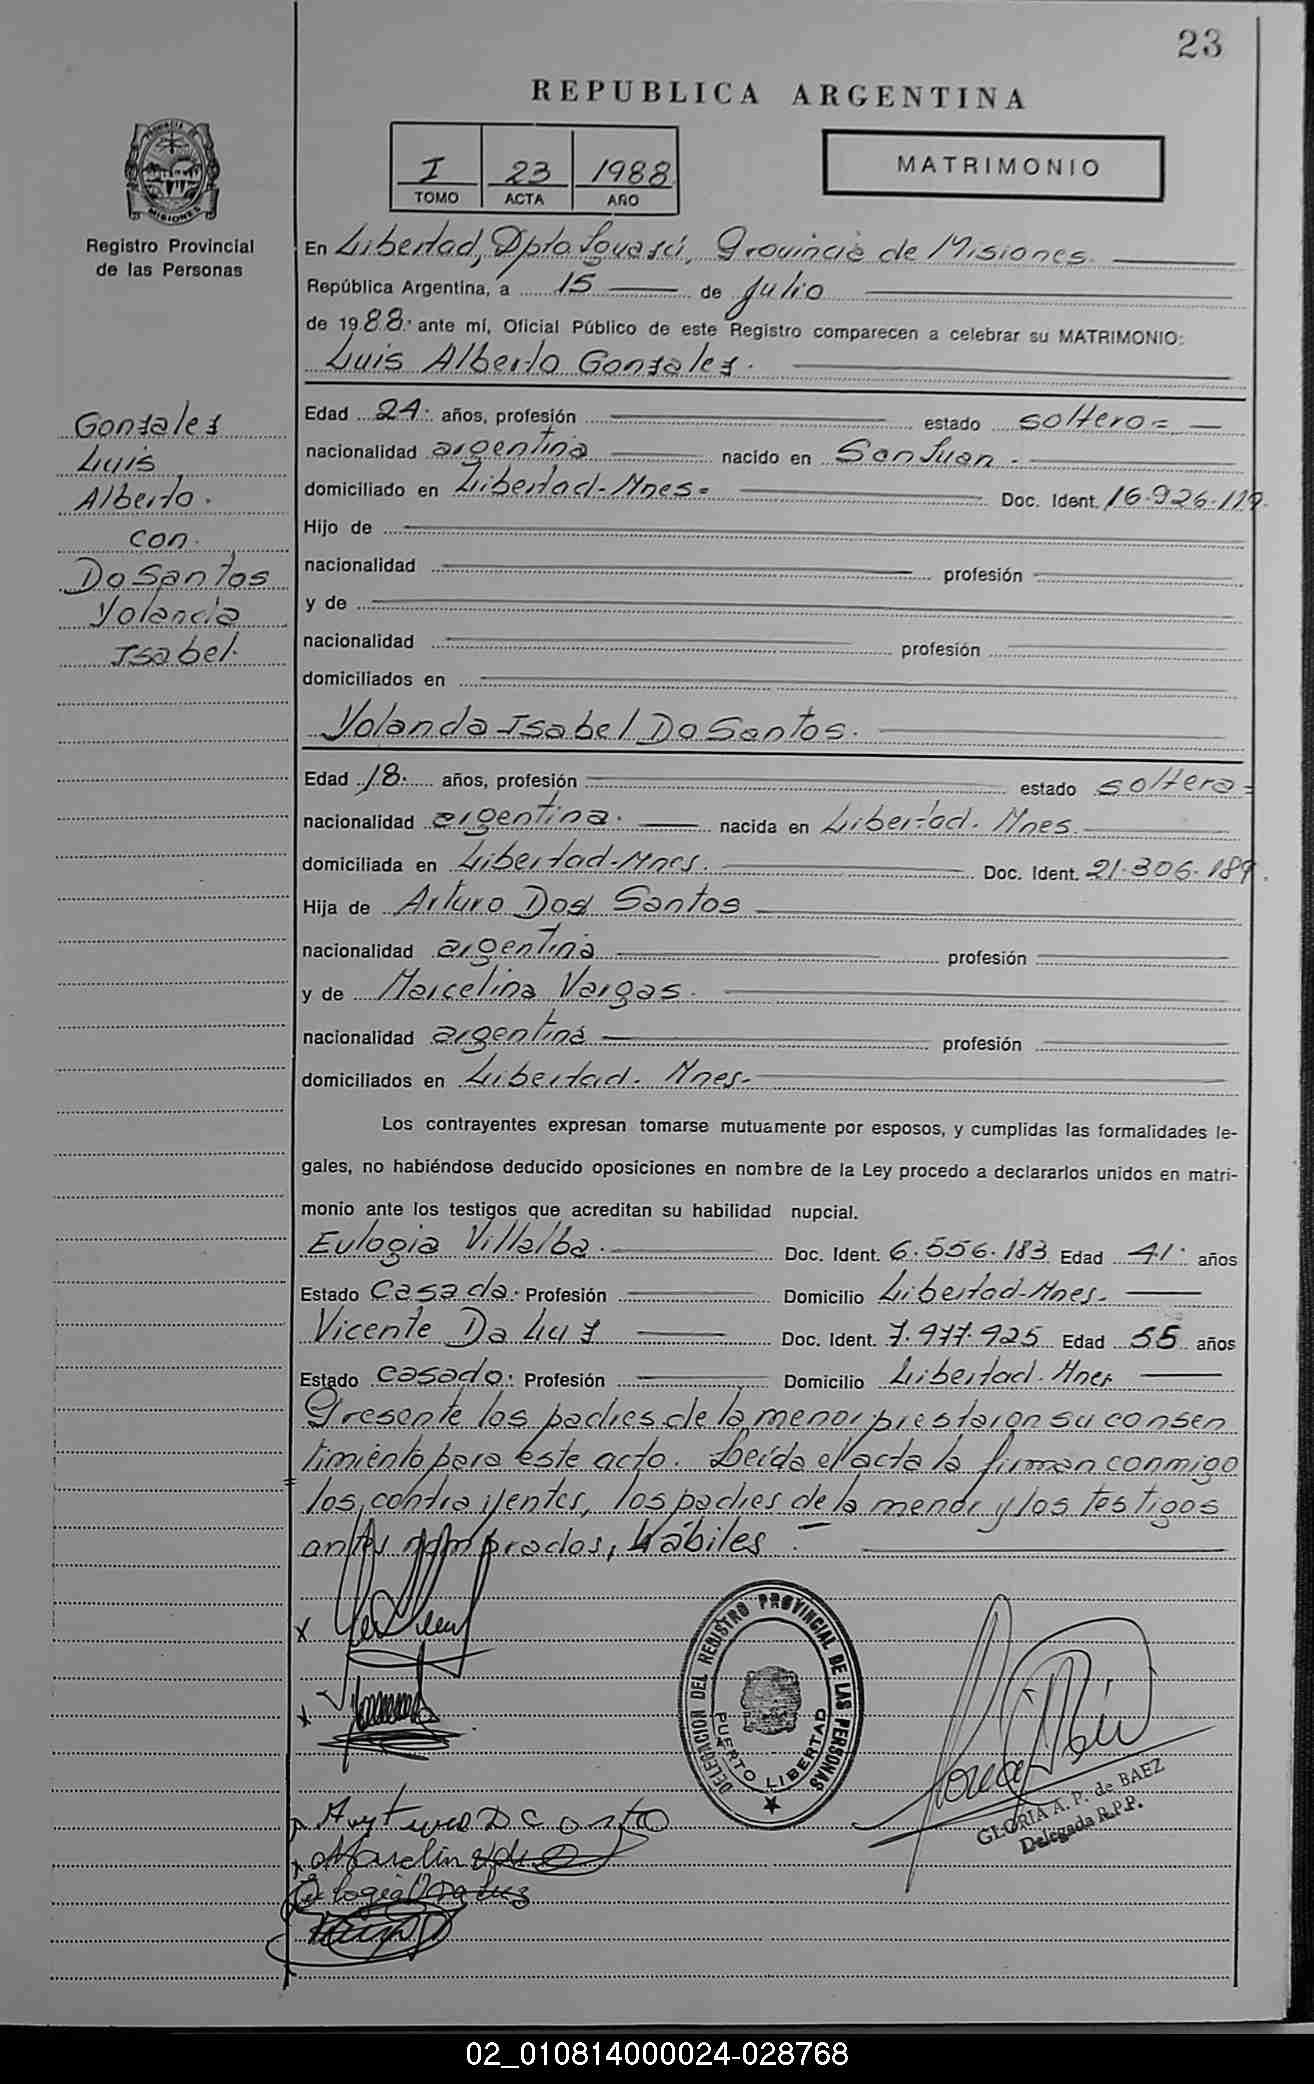 23
REPUBLICA ARGENTINA
I 23 1988
TOMO ACTA AÑO
MATRIMONIO
PROVINCIA DE MISIONES
Registro Provincial
de las Personas
En Libertad, Dpto Iguazú, Provincia de Misiones.
República Argentina, a 15 de Julio
de 1988. ante mí, Oficial Público de este Registro comparecen a celebrar su MATRIMONIO:
Luis Alberto Gonzalez.
Gonzalez
Luis
Alberto.
con.
Do Santos
Yolanda
Isabel.
Edad 24. años, profesión estado soltero=
nacionalidad argentina nacido en San Juan.
domiciliado en Libertad-Mnes= Doc. Ident. 16.926.119.
Hijo de
nacionalidad profesión
y de
nacionalidad profesión
domiciliados en
Yolanda Isabel Do Santos.
Edad 18. años, profesión estado soltera=
nacionalidad argentina. nacida en Libertad. Mnes.
domiciliada en Libertad-Mnes. Doc. Ident. 21.306.189.
Hija de Arturo Dos Santos
nacionalidad argentina profesión
y de Marcelina Vargas.
nacionalidad argentina profesión
domiciliados en Libertad. Mnes-
Los contrayentes expresan tomarse mutuamente por esposos, y cumplidas las formalidades le-
gales, no habiéndose deducido oposiciones en nombre de la Ley procedo a declararlos unidos en matri-
monio ante los testigos que acreditan su habilidad nupcial.
Eulogia Villalba. Doc. Ident. 6.556.183 Edad 41. años
Estado Casada. Profesión Domicilio Libertad-Mnes.
Vicente Da Luz Doc. Ident. 7.477.925 Edad 55 años
Estado casado. Profesión Domicilio Libertad. Mnes
Presente los padres de la menor prestaron su consen
timiento para este acto. Leída el acta la firman conmigo
los contrayentes, los padres de la menor y los testigos
antes nombrados, hábiles.
DELEGACION DEL REGISTRO PROVINCIAL DE LAS PERSONAS
PUERTO LIBERTAD
GLORIA A. P. de BAEZ
Delegada R.P.P.
02_010814000024-028768